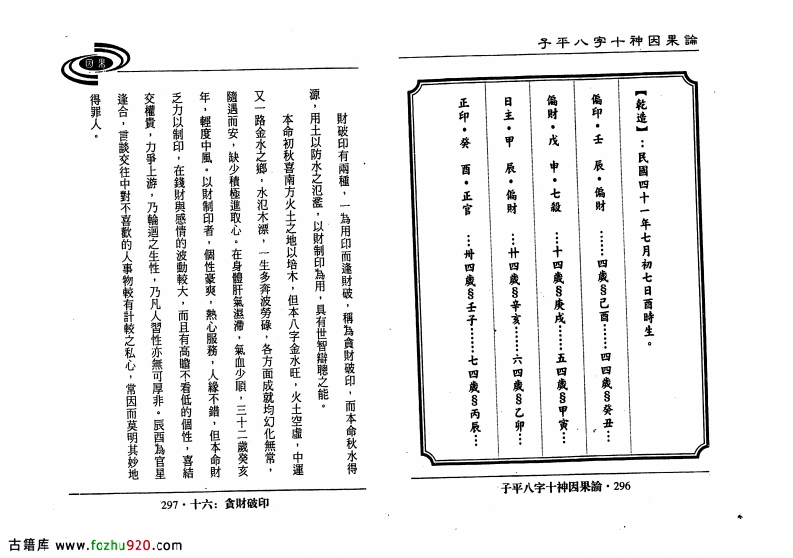 子平八字十神因果論
【乾造】：民國四十一年七月初七日酉時生。
偏印•壬　辰•偏財　……四歲§己酉……四四歲§癸丑…
偏財•戊　申•七殺　……十四歲§庚戌……五四歲§甲寅…
日主•甲　辰•偏財　……廿四歲§辛亥……六四歲§乙卯…
正印•癸　酉•正官　……卅四歲§壬子……七四歲§丙辰…
子平八字十神因果論•296
因果
財破印有兩種，一為用印而逢財破，稱為貪財破印，而本命秋水得
源，用土以防水之氾濫，以財制印為用，具有世智辯聰之能。
本命初秋喜南方火土之地以培木，但本八字金水旺，火土空虛，中運
又一路金水之鄉，水氾木漂，一生多奔波勞碌，各方面成就均幻化無常，
隨遇而安，缺少積極進取心。在身體肝氣濕滯，氣血少順，三十二歲癸亥
年，輕度中風。以財制印者，個性豪爽，熱心服務，人緣不錯，但本命財
乏力以制印，在錢財與感情的波動較大，而且有高瞻不看低的個性，喜結
交權貴，力爭上游，乃輪迴之生性，乃凡人習性亦無可厚非。辰酉為官星
逢合，言談交往中對不喜歡的人事物較有計較之私心，常因而莫明其妙地
得罪人。
297•十六：貪財破印
古籍库 www.fozhu920.com